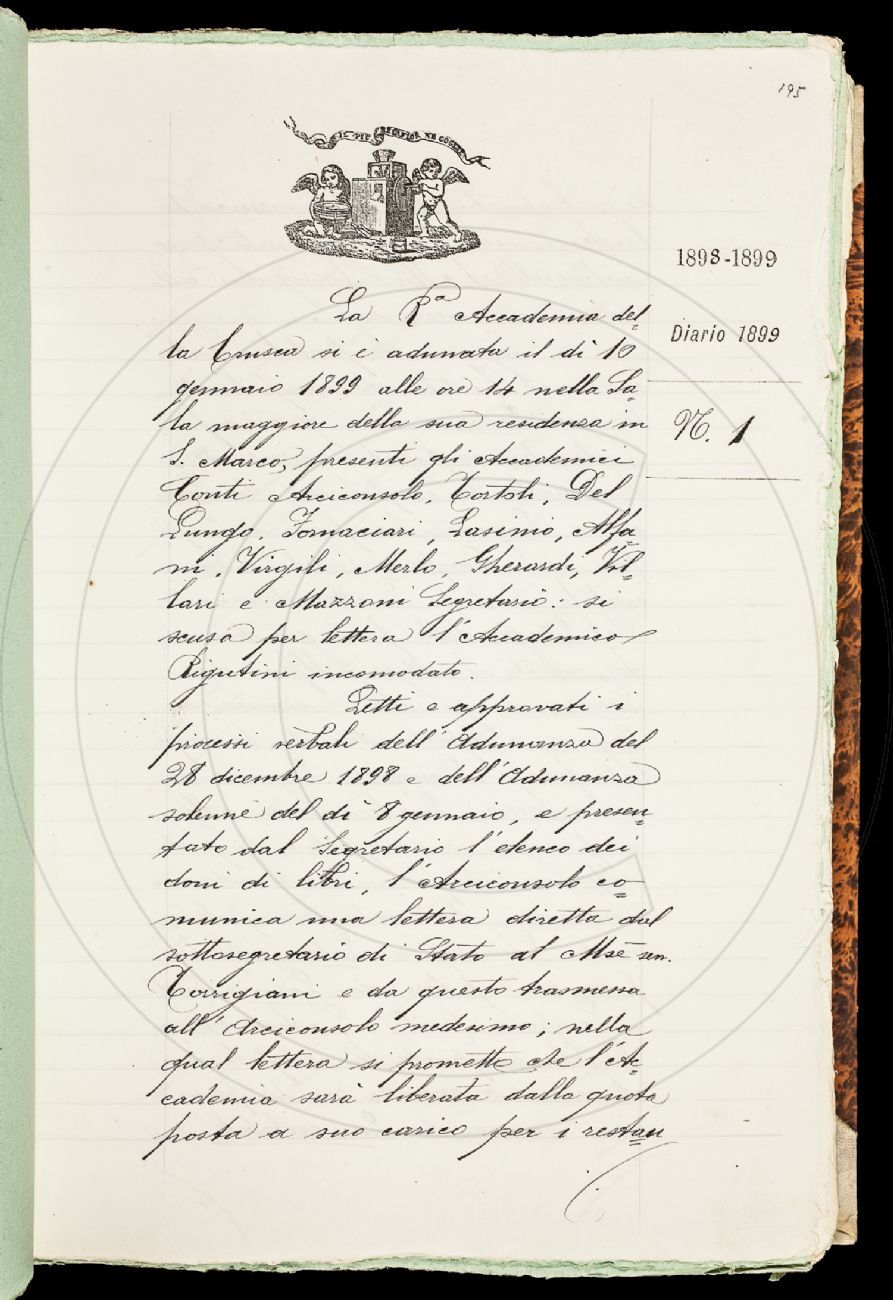 195
IL PIÙ BEL FIOR NE COGLIE
1898-1899
Diario 1899
N. 1
La R.ª Accademia del=
la Crusca si è adunata il dì 10
gennaio 1899 alle ore 14 nella Sa=
la maggiore della sua residenza in
S. Marco, presenti gli Accademici
Conti Arciconsolo, Tortoli, Del
Lungo, Fornaciari, Lasinio, Alfa=
ni, Virgili, Merlo, Gherardi, Vil=
lari e Mazzoni Segretario: si
scusa per lettera l'Accademico
Rigutini incomodato.
Letti e approvati i
processi verbali dell'Adunanza del
28 dicembre 1898 e dell'Adunanza
solenne del dì 8 gennaio, e presen=
tato dal Segretario l'elenco dei
doni di libri, l'Arciconsolo co=
munica una lettera diretta dal
sottosegretario di Stato al Mse sen.
Torrigiani e da questo trasmessa
all'Arciconsolo medesimo; nella
qual lettera si promette che l'Ac=
cademia sarà liberata dalla quota
posta a suo carico per i restau=